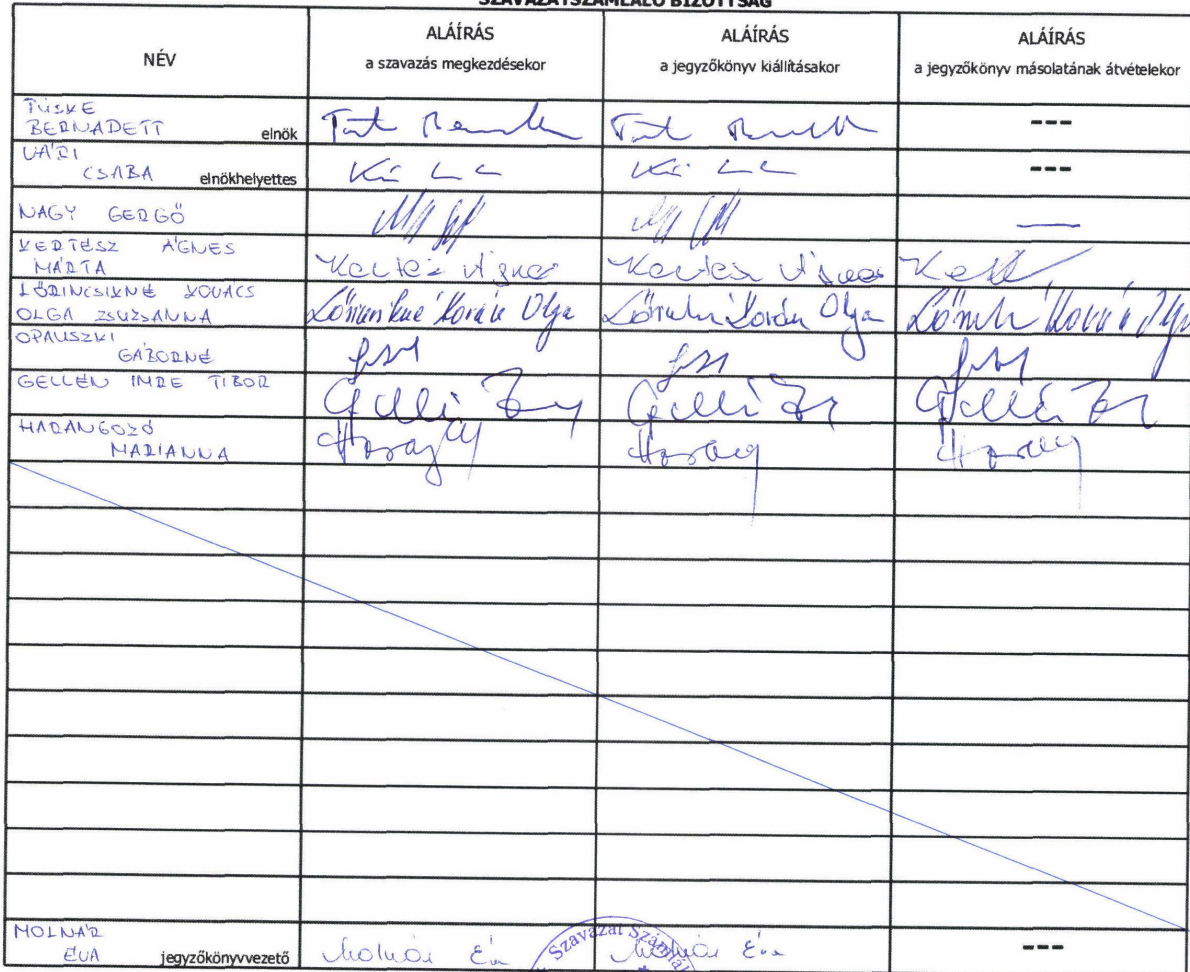 SZAVAZATSZÁMLÁLÓ BIZOTTSÁG
NÉV
ALÁÍRÁS
a szavazás megkezdésekor
ALÁÍRÁS
a jegyzőkönyv kiállításakor
ALÁÍRÁS
a jegyzőkönyv másolatának átvételekor
TÜSKE
BERNADETT elnök
---
VÁRI
CSABA elnökhelyettes
---
NAGY GERGŐ
—
KERTÉSZ ÁGNES
MÁRTA
Kertész Ágnes Kertész Ágnes
LŐRINCSIKNÉ KOVÁCS
OLGA ZSUZSANNA
Lőrincsikné Kovács Olga
OPAUSZKI
GÁBORNÉ
GELLÉN IMRE TIBOR
HARANGOZÓ
MARIANNA
MOLNÁR
ÉVA jegyzőkönyvvezető
Molnár Éva Molnár Éva ---
Szavazat Számlál